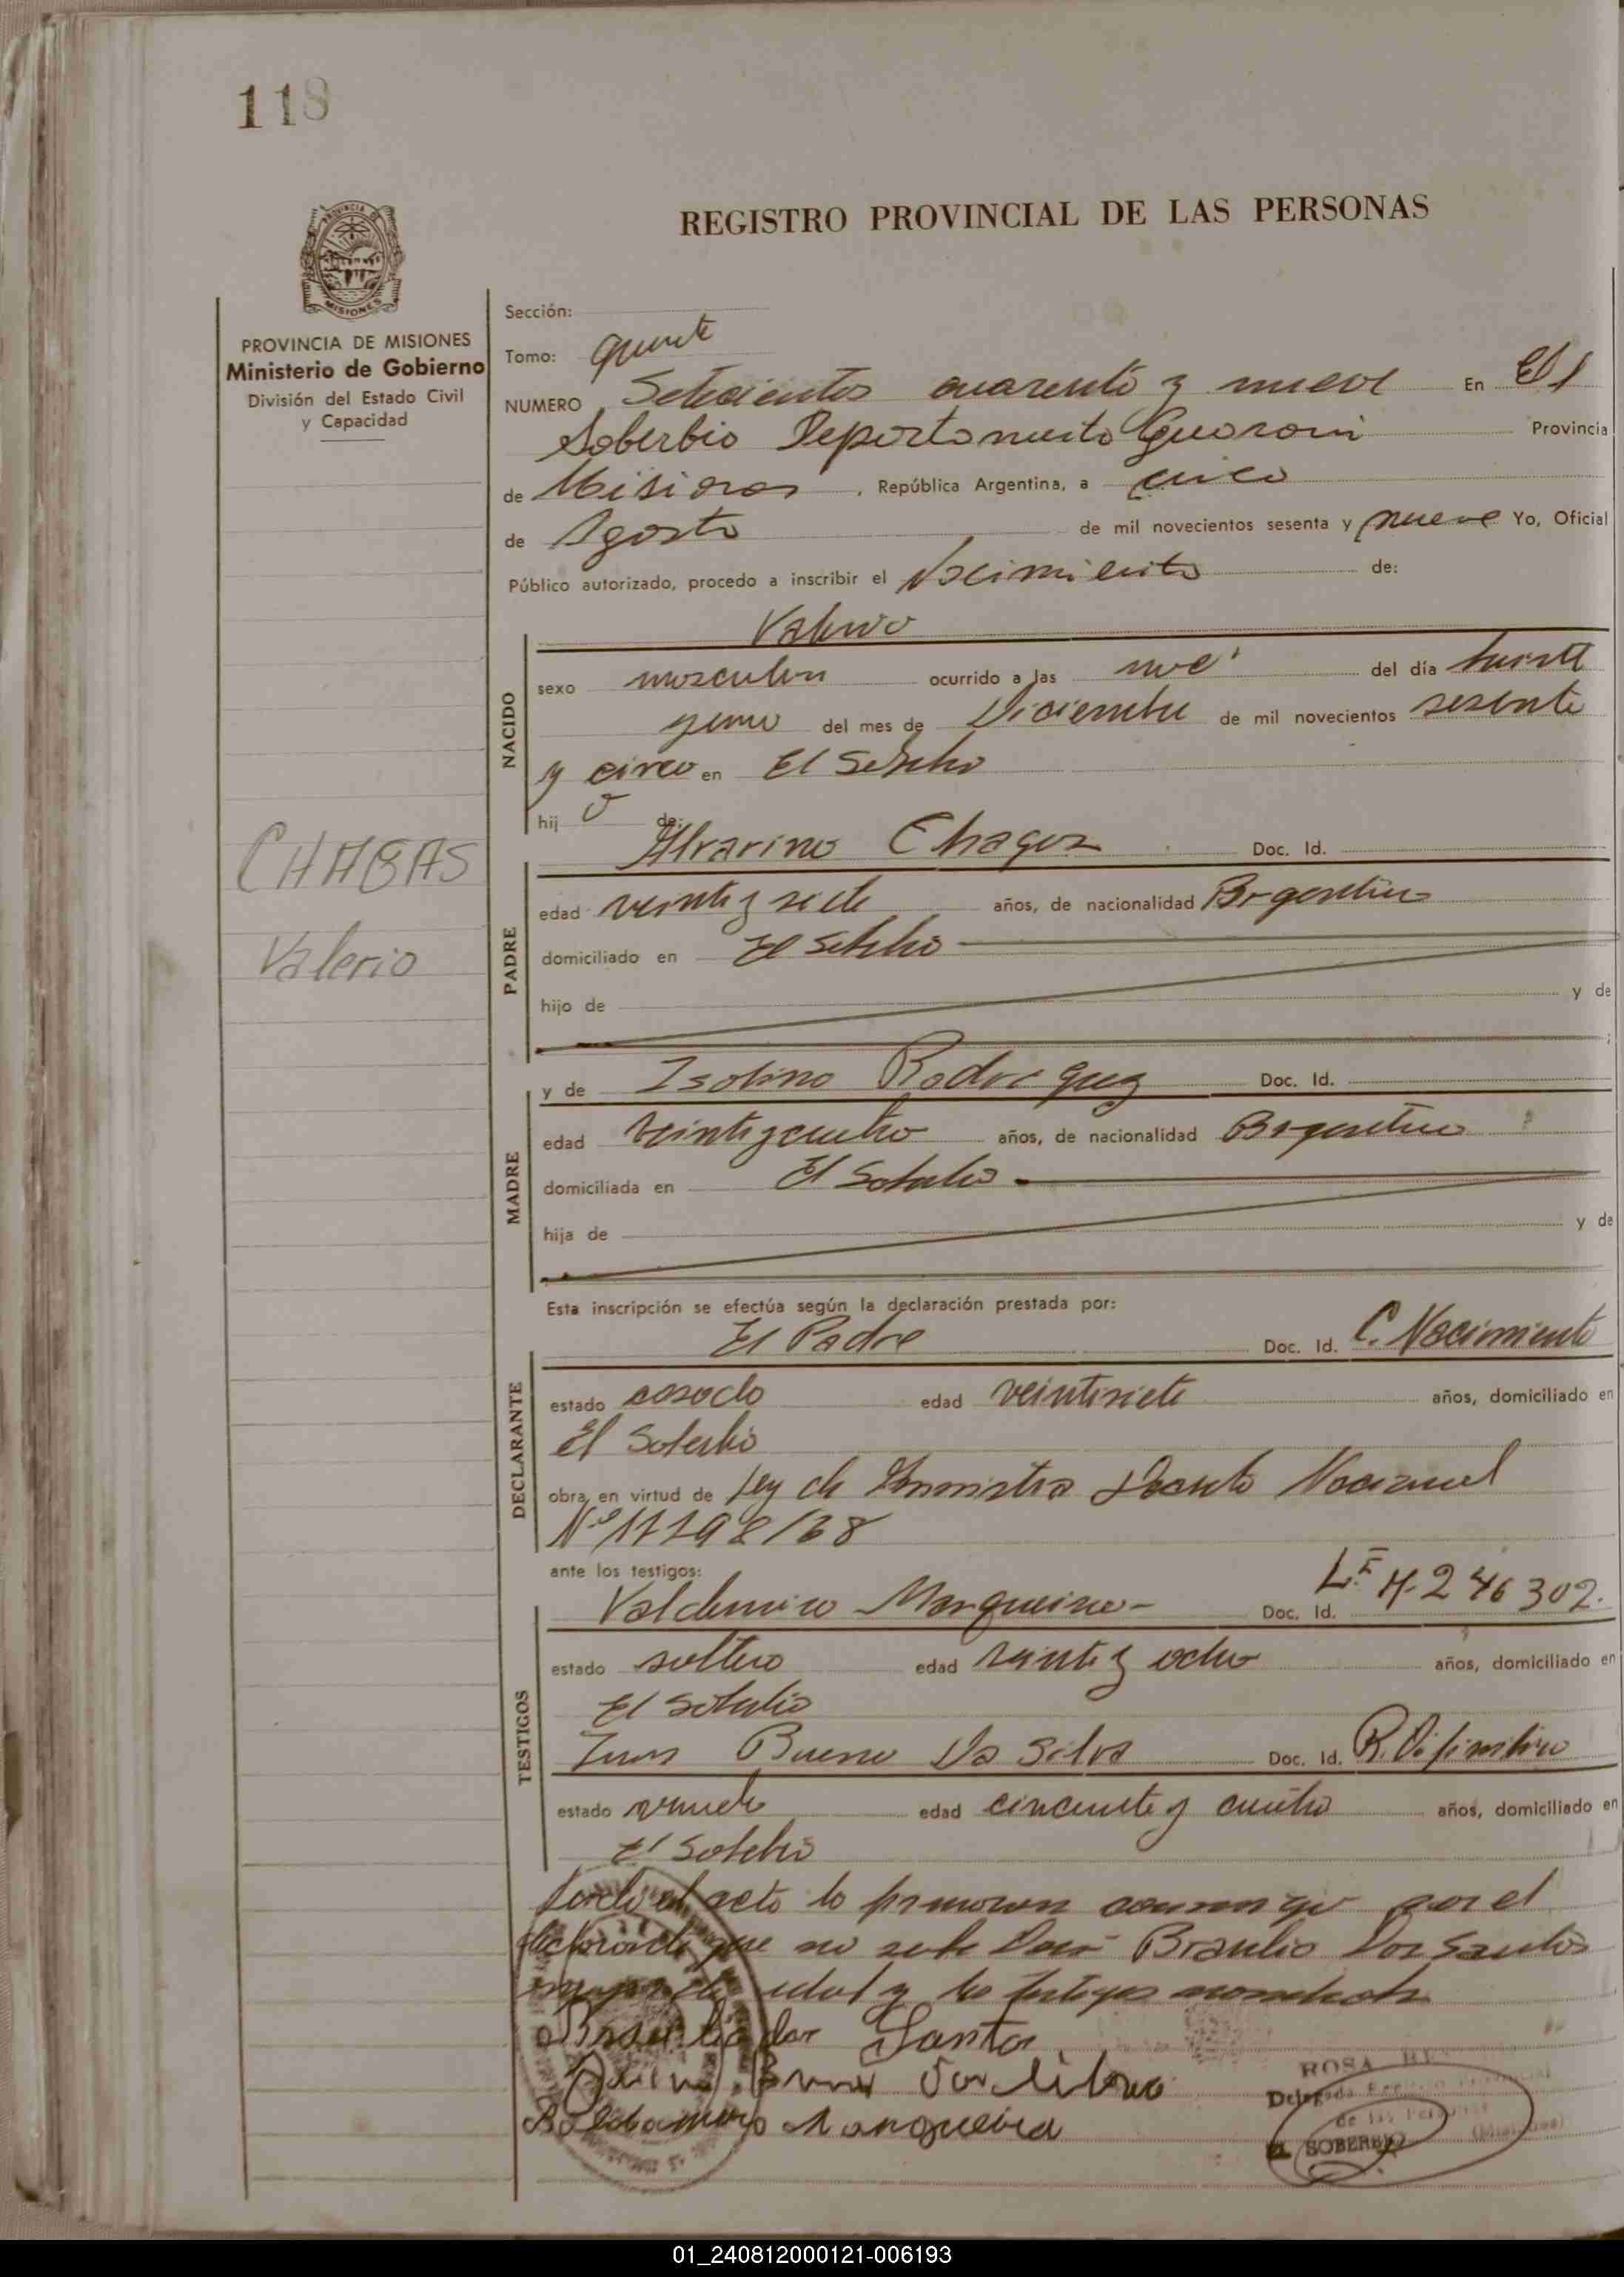 118
REGISTRO PROVINCIAL DE LAS PERSONAS
PROVINCIA DE MISIONES
Ministerio de Gobierno
División del Estado Civil
y Capacidad
Sección:
Tomo:
NUMERO Setecientos cuarenta y nueve En El
Soberbio Departamento Guarani Provincia
de Misiones, República Argentina, a cinco
de Agosto de mil novecientos sesenta y nueve Yo, Oficial
Público autorizado, procedo a inscribir el Nacimiento de:
Valerio
NACIDO
sexo masculino ocurrido a las nueve del día
del mes de Diciembre de mil novecientos sesenta
y cinco en El Soberbio
hijo de:
CHAGAS
Valerio
PADRE
Alvarino Chagas Doc. Id.
edad veinte y siete años, de nacionalidad Argentino
domiciliado en El Soberbio
hijo de y de
MADRE
y de Isolina Rodriguez Doc. Id.
edad veinte y cuatro años, de nacionalidad Argentina
domiciliada en El Soberbio
hija de y de
Esta inscripción se efectúa según la declaración prestada por:
DECLARANTE
El Padre Doc. Id. C. Nacimiento
estado casado edad veintisiete años, domiciliado en
El Soberbio
obra en virtud de Ley de Amnistia Decreto Nacional
ante los testigos:
TESTIGOS
Valdemiro Margueira Doc. Id.
estado soltero edad veinte y ocho años, domiciliado en
El Soberbio
Bueno Da Silva Doc. Id.
estado viudo edad cincuenta y cuatro años, domiciliado en
El Soberbio
acta la firmaron conmigo por el
declarante que no sabe Braulio Dos Santos
mayor de edad y los testigos nombrados
ROSA
Delegada Registro Provincial
de las Personas
EL SOBERBIO (Misiones)
01_240812000121-006193